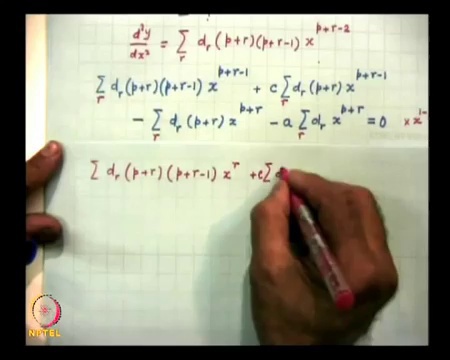 d²y/dx² = Σ_r d_r (p+r)(p+r-1) x^{p+r-2}
Σ_r d_r (p+r)(p+r-1) x^{p+r-1} + c Σ_r d_r (p+r) x^{p+r-1}
- Σ_r d_r (p+r) x^{p+r} - a Σ_r d_r x^{p+r} = 0 × x^{1-
Σ d_r (p+r)(p+r-1) x^r + c Σ d
NPTEL